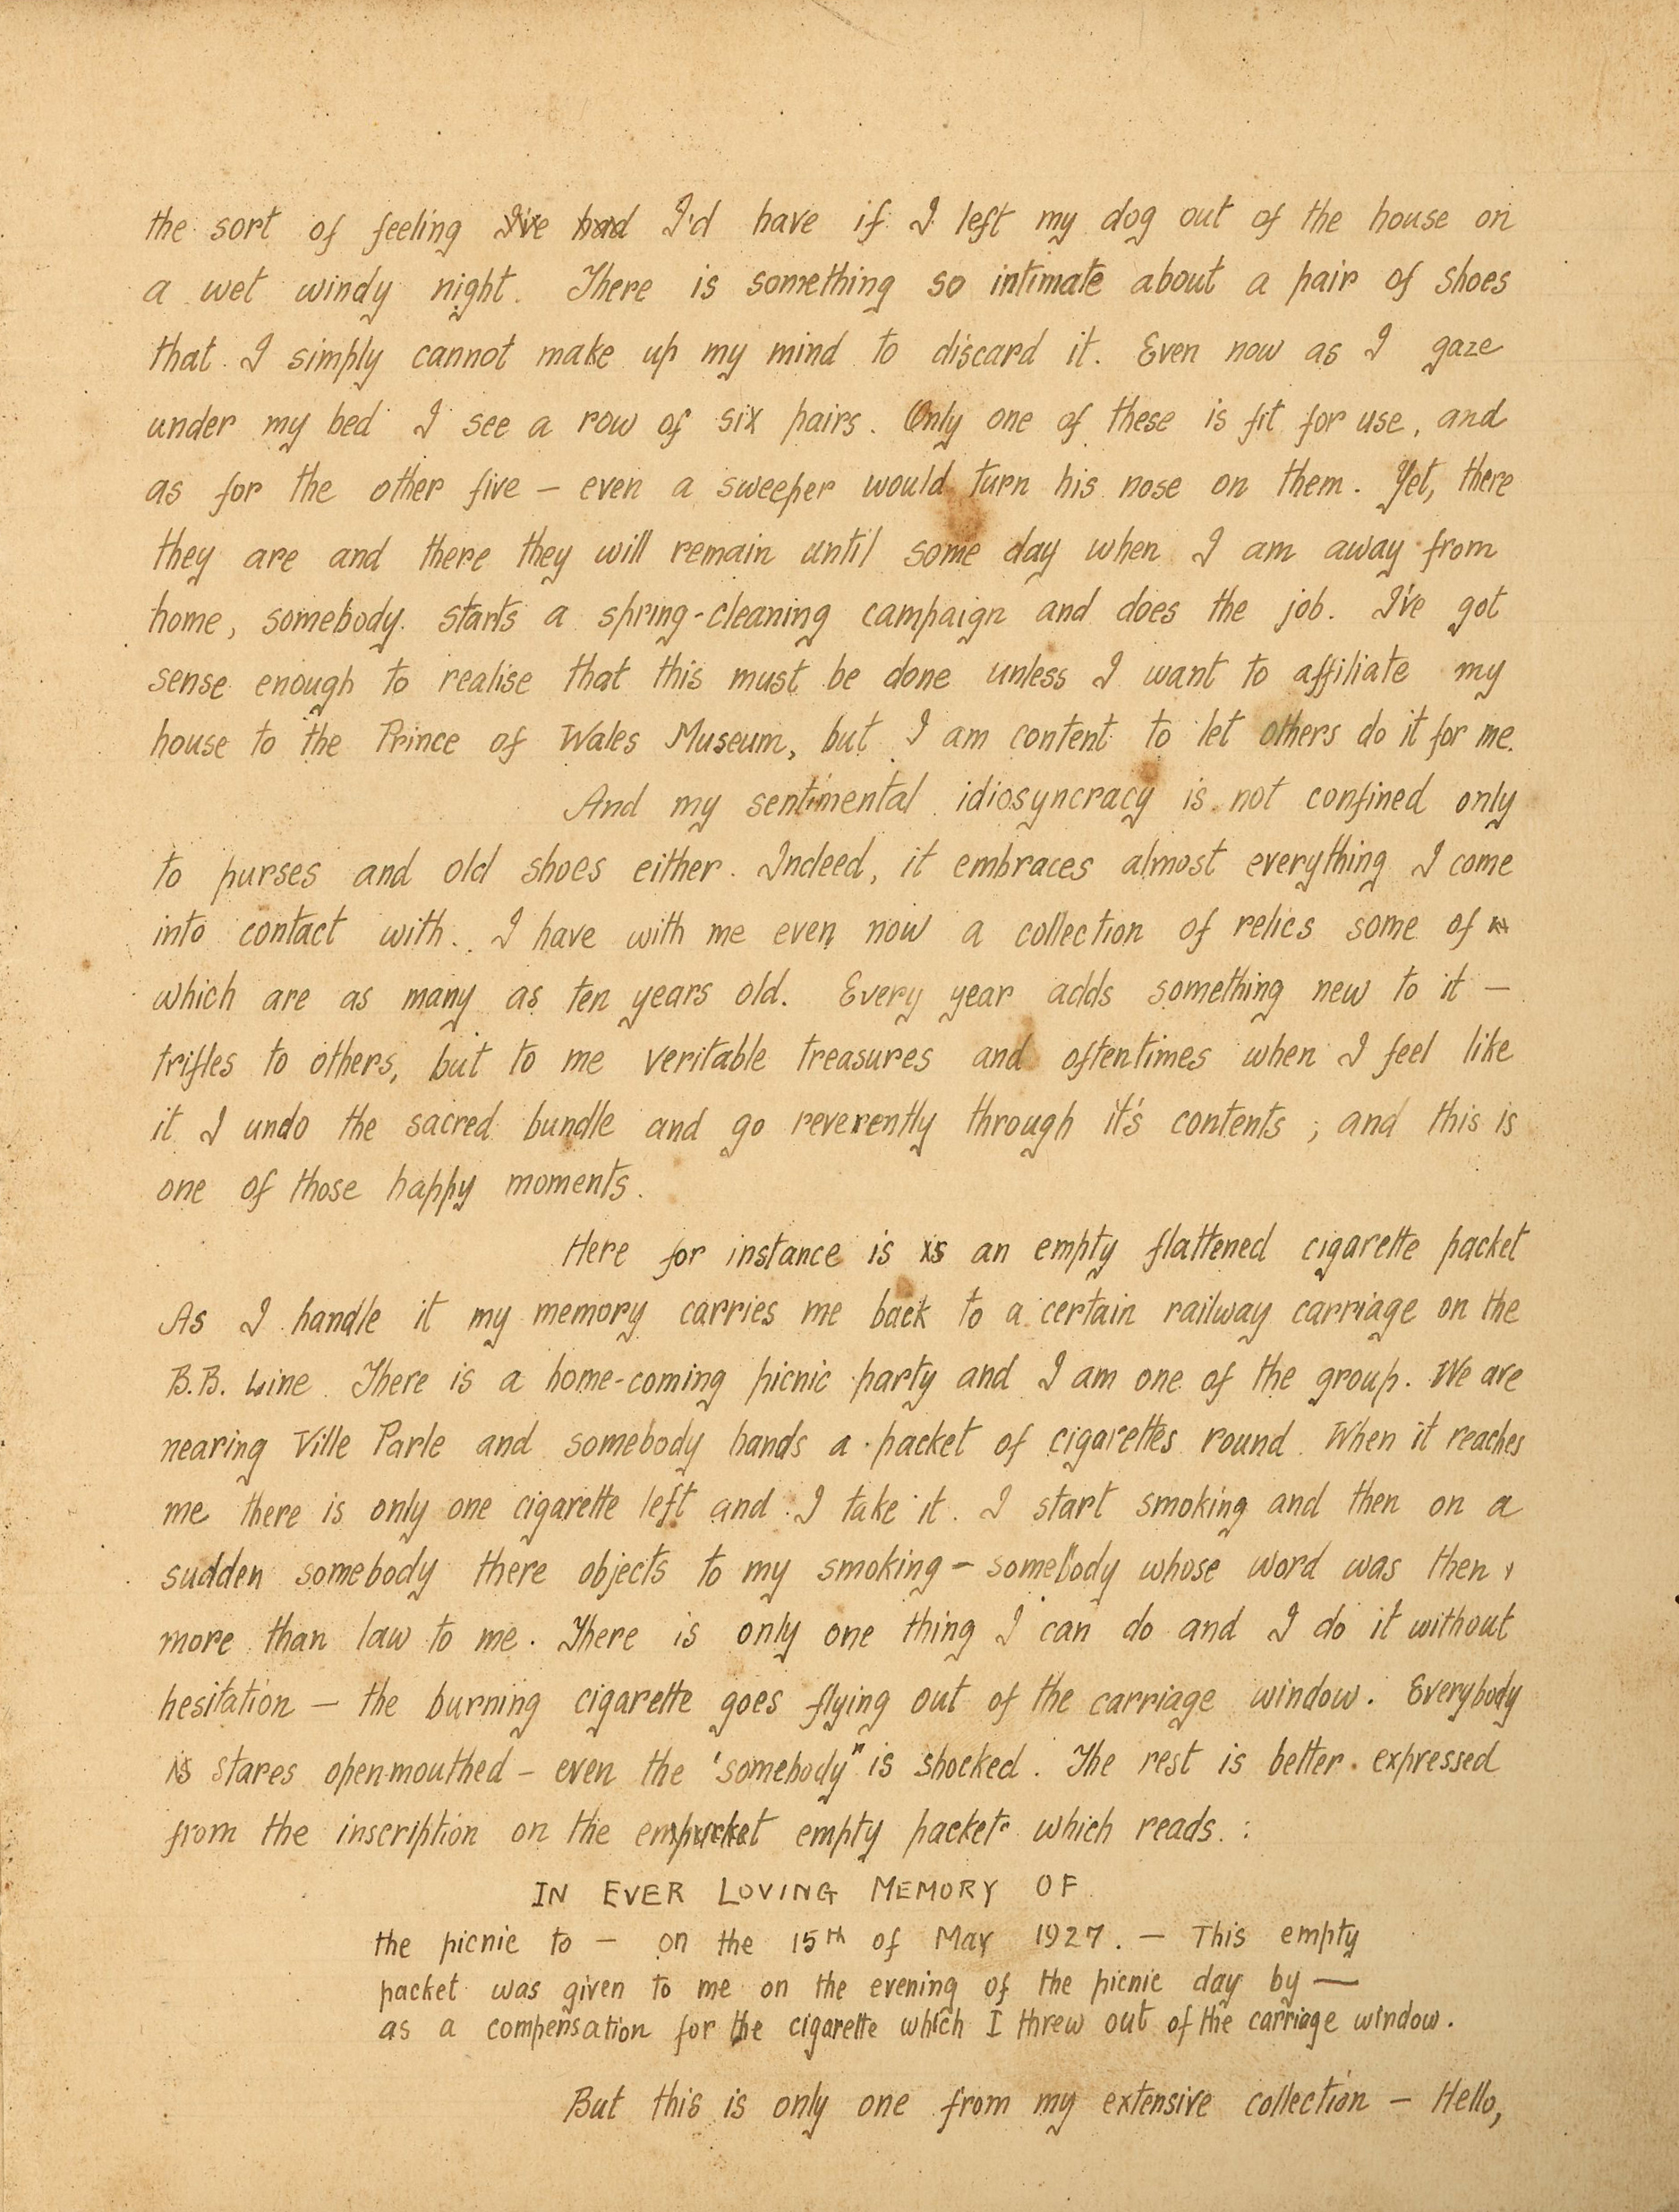 the sort of feeling I've had I'd have if I left my dog out of the house on
a wet windy night. There is something so intimate about a pair of shoes
that I simply cannot make up my mind to discard it. Even now as I gaze
under my bed I see a row of six pairs. Only one of these is fit for use, and
as for the other five – even a sweeper would turn his nose on them. Yet, there
they are and there they will remain until some day when I am away from
home, somebody starts a spring-cleaning campaign and does the job. I've got
sense enough to realise that this must be done unless I want to affiliate my
house to the Prince of Wales Museum, but I am content to let others do it for me.
And my sentimental idiosyncracy is not confined only
to purses and old shoes either. Indeed, it embraces almost everything I come
into contact with. I have with me even now a collection of relics some of
which are as many as ten years old. Every year adds something new to it –
trifles to others, but to me veritable treasures and oftentimes when I feel like
it I undo the sacred bundle and go reverently through it's contents; and this is
one of those happy moments.
Here for instance is is an empty flattened cigarette packet
As I handle it my memory carries me back to a certain railway carriage on the
B.B. Line. There is a home-coming picnic party and I am one of the group. We are
nearing Ville Parle and somebody hands a packet of cigarettes round. When it reaches
me there is only one cigarette left and I take it. I start smoking and then on a
sudden somebody there objects to my smoking – somebody whose word was then
more than law to me. There is only one thing I can do and I do it without
hesitation – the burning cigarette goes flying out of the carriage window. Everybody
is stares open-mouthed – even the 'somebody" is shocked. The rest is better expressed
from the inscription on the empty packet which reads. :
IN EVER LOVING MEMORY OF
the picnic to – on the 15TH of May 1927. – This empty
packet was given to me on the evening of the picnic day by —
as a compensation for the cigarette which I threw out of the carriage window.
But this is only one from my extensive collection – Hello,